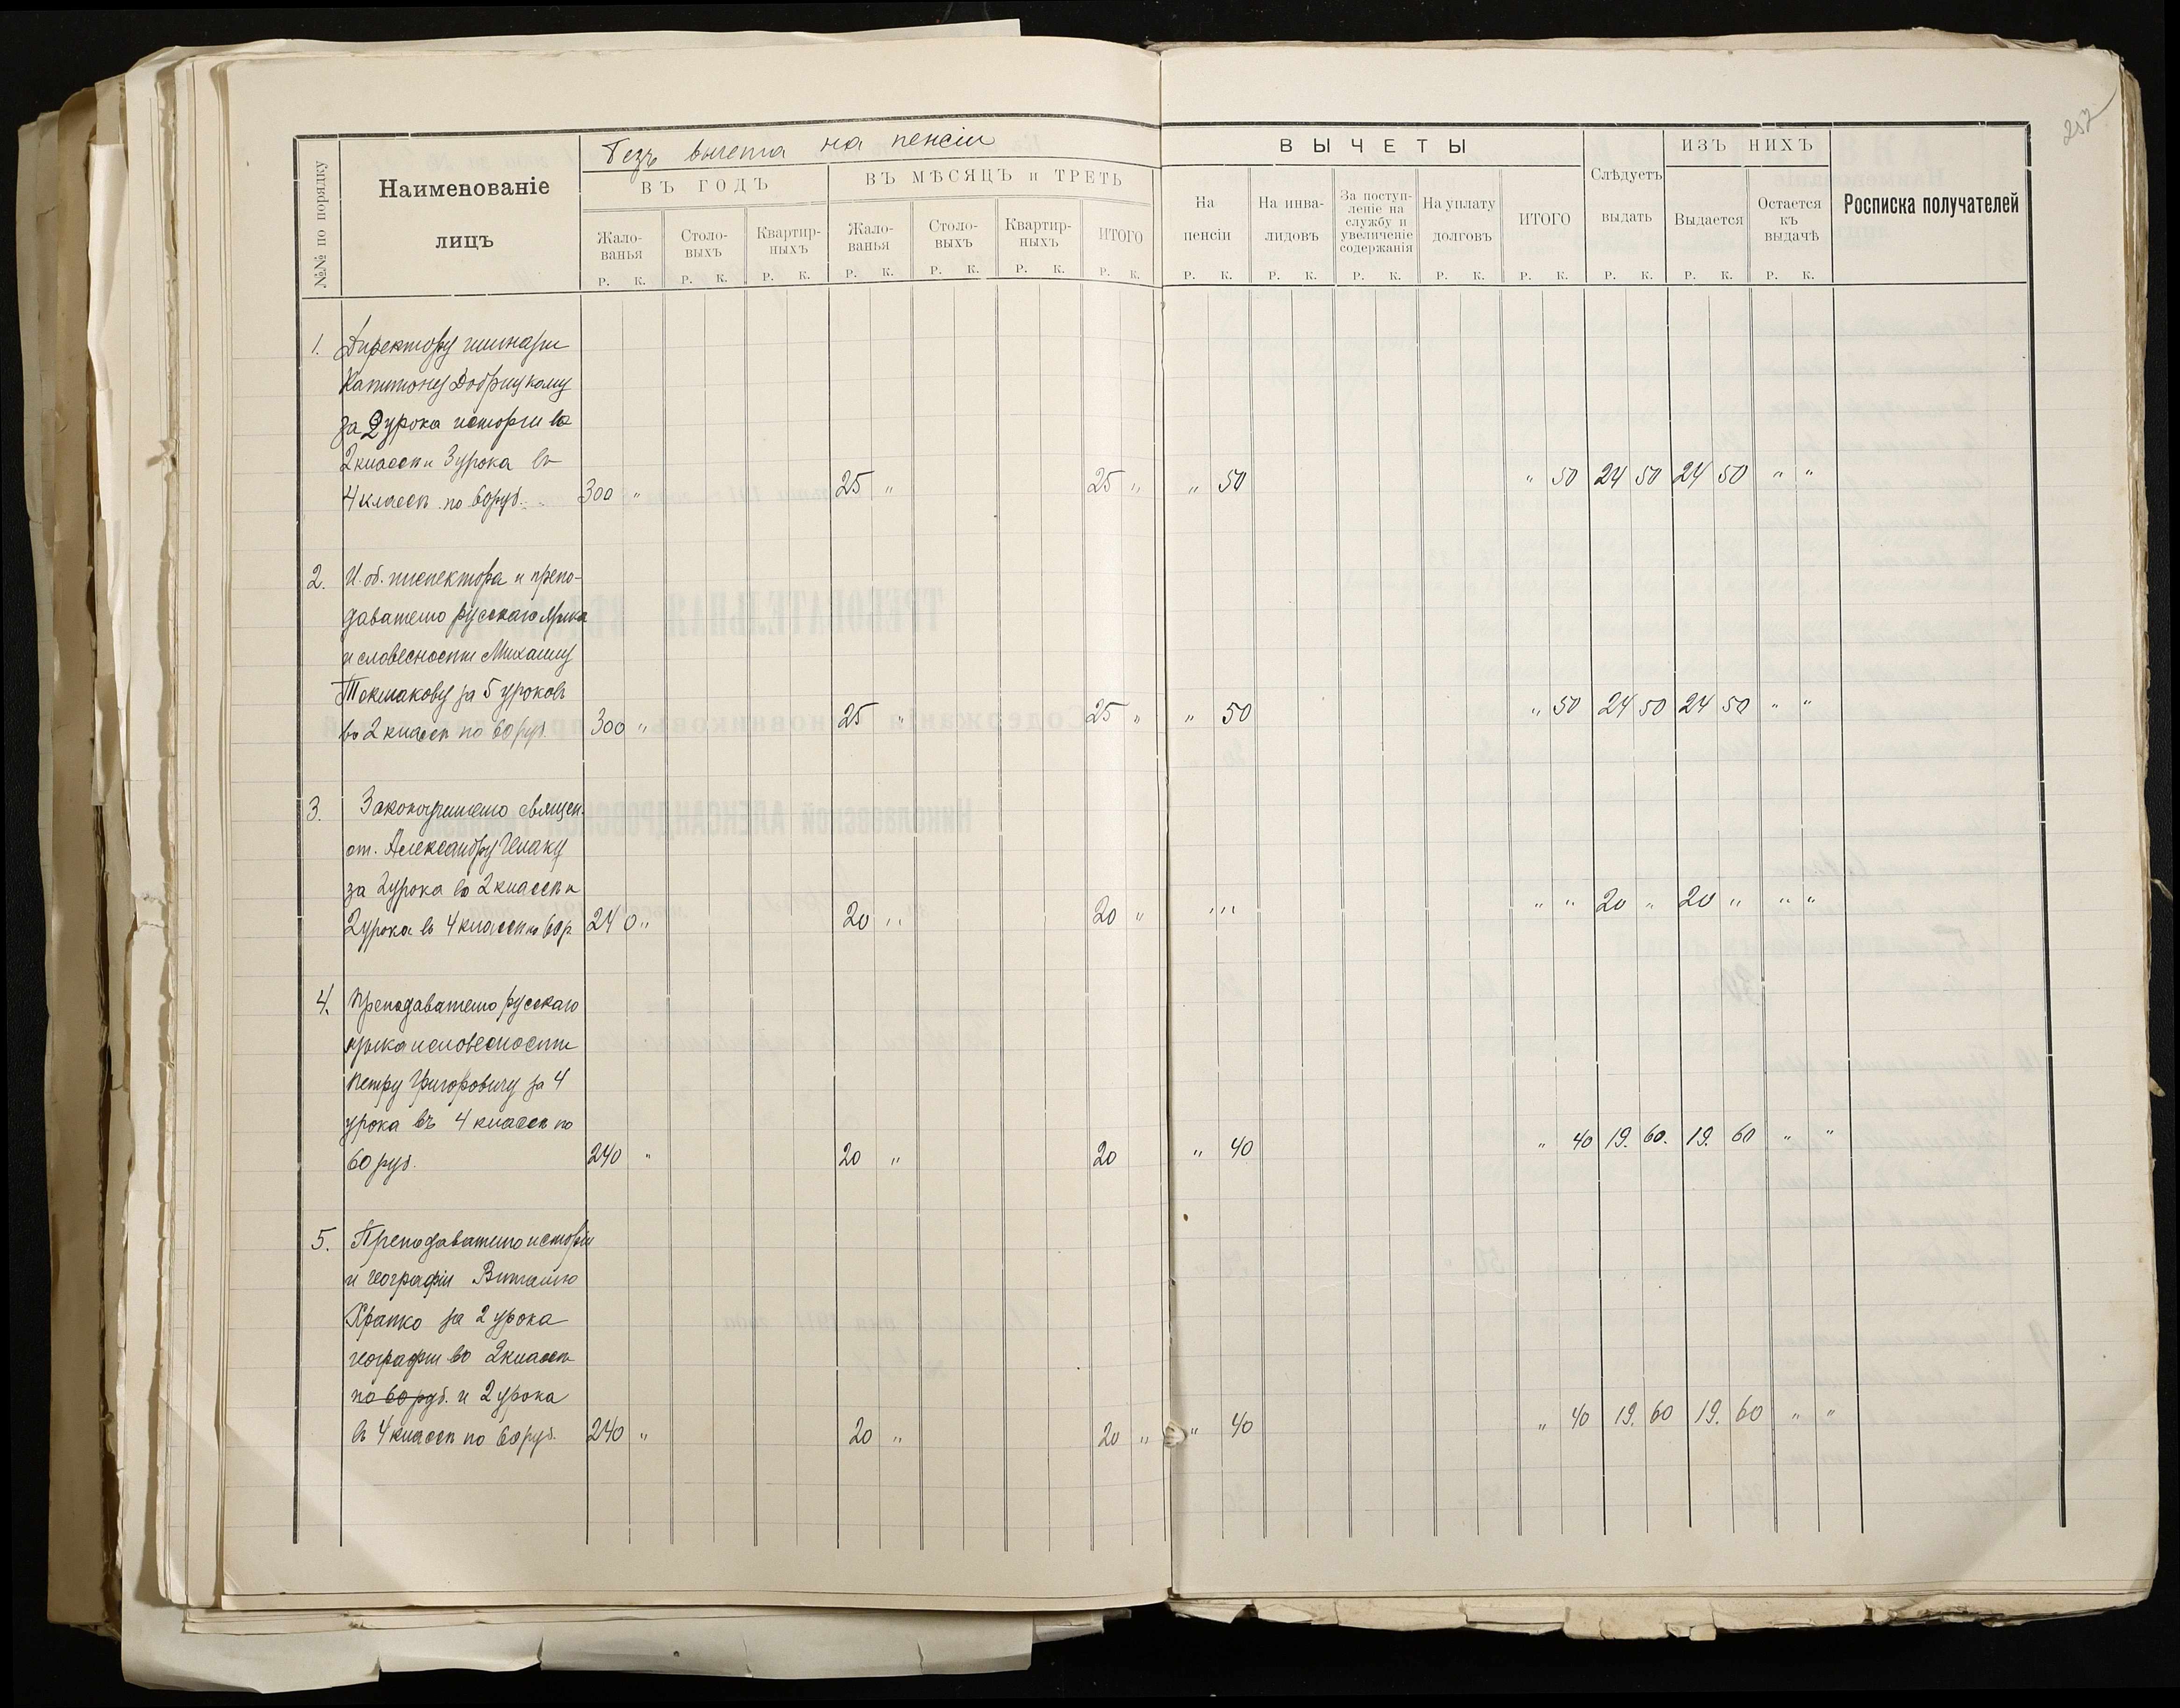 257
Безъ вычета на пенсіи
№№ по порядку
Наименованіе
лицъ
ВЪ ГОДЪ
ВЪ МѢСЯЦЪ и ТРЕТЬ
Жало-
ванья
Столо-
выхъ
Квартир-
ныхъ
Жало-
ванья
Столо-
выхъ
Квартир-
ныхъ
ИТОГО
Р. К. Р. К. Р. К. Р. К. Р. К. Р. К. Р. К.
ВЫЧЕТЫ
На
пенсіи
На инва-
лидовъ
За поступ-
леніе на
службу и
увеличеніе
содержанія
На уплату
долговъ
ИТОГО
Слѣдуетъ
выдать
ИЗЪ НИХЪ
Выдается
Остается
къ
выдачѣ
Росписка получателей
Р. К. Р. К. Р. К. Р. К. Р. К. Р. К. Р. К. Р. К.
1. Директору гимназіи
Капитону Добрицкому
за 2 урока исторіи во
2 классѣ и 3 урока въ
4 классѣ по 60 руб. 300 " 25 " 25 " " 50 " 50 24 50 24 50 " "
2. И. об. инспектора и препо-
давателю русскаго языка
и словесности Михаилу
Токмакову за 5 уроковъ
во 2 классѣ по 60 руб. 300 " 25 " 25 " " 50 " 50 24 50 24 50 " "
3. Законоучителю священ.
от. Александру
за 2 урока во 2 классѣ и
2 урока въ 4 классѣ по 60 р 240 " 20 " 20 " " " " " 20 " 20 " " "
4. Преподавателю русскаго
языка и словесности
Петру Григоровичу за 4
урока въ 4 классѣ по
60 руб. 240 " 20 " 20 " 40 " 40 19. 60. 19. 60 " "
5. Преподавателю исторіи
и географіи Виталію
Храпко за 2 урока
географіи во 2 классѣ
по 60 руб. и 2 урока
въ 4 классѣ по 60 руб. 240 " 20 " 20 " " 40 " 40 19. 60 19. 60 " "